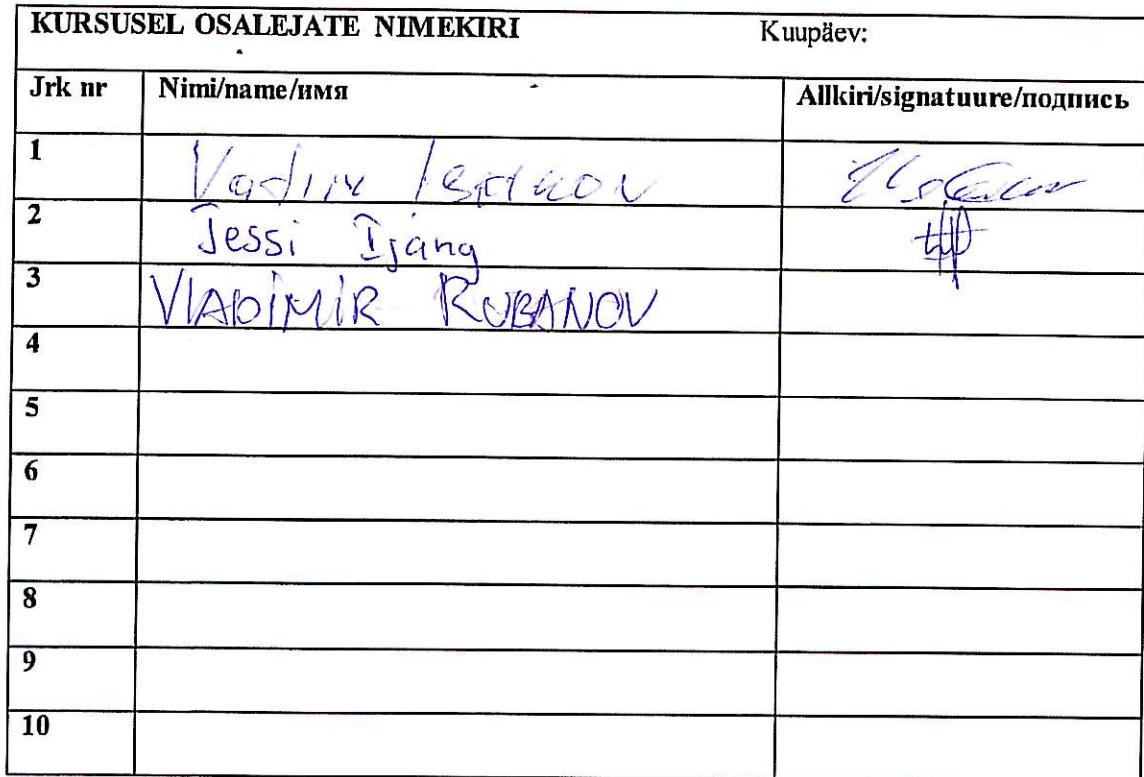 KURSUSEL OSALEJATE NIMEKIRI Kuupäev:
Jrk nr Nimi/name/имя Allkiri/signatuure/подпись
1 Vadim
2 Jessi Ijäng
3 VlADiMiR RUBANOV
4
5
6
7
8
9
10